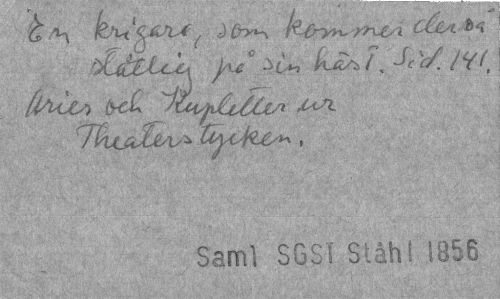 En krigare, som kommer der så
ståtlig på sin häst. Sid. 141.
Arier och Kupletter ur
Theaterstycken.
Saml SGST Ståhl 1856